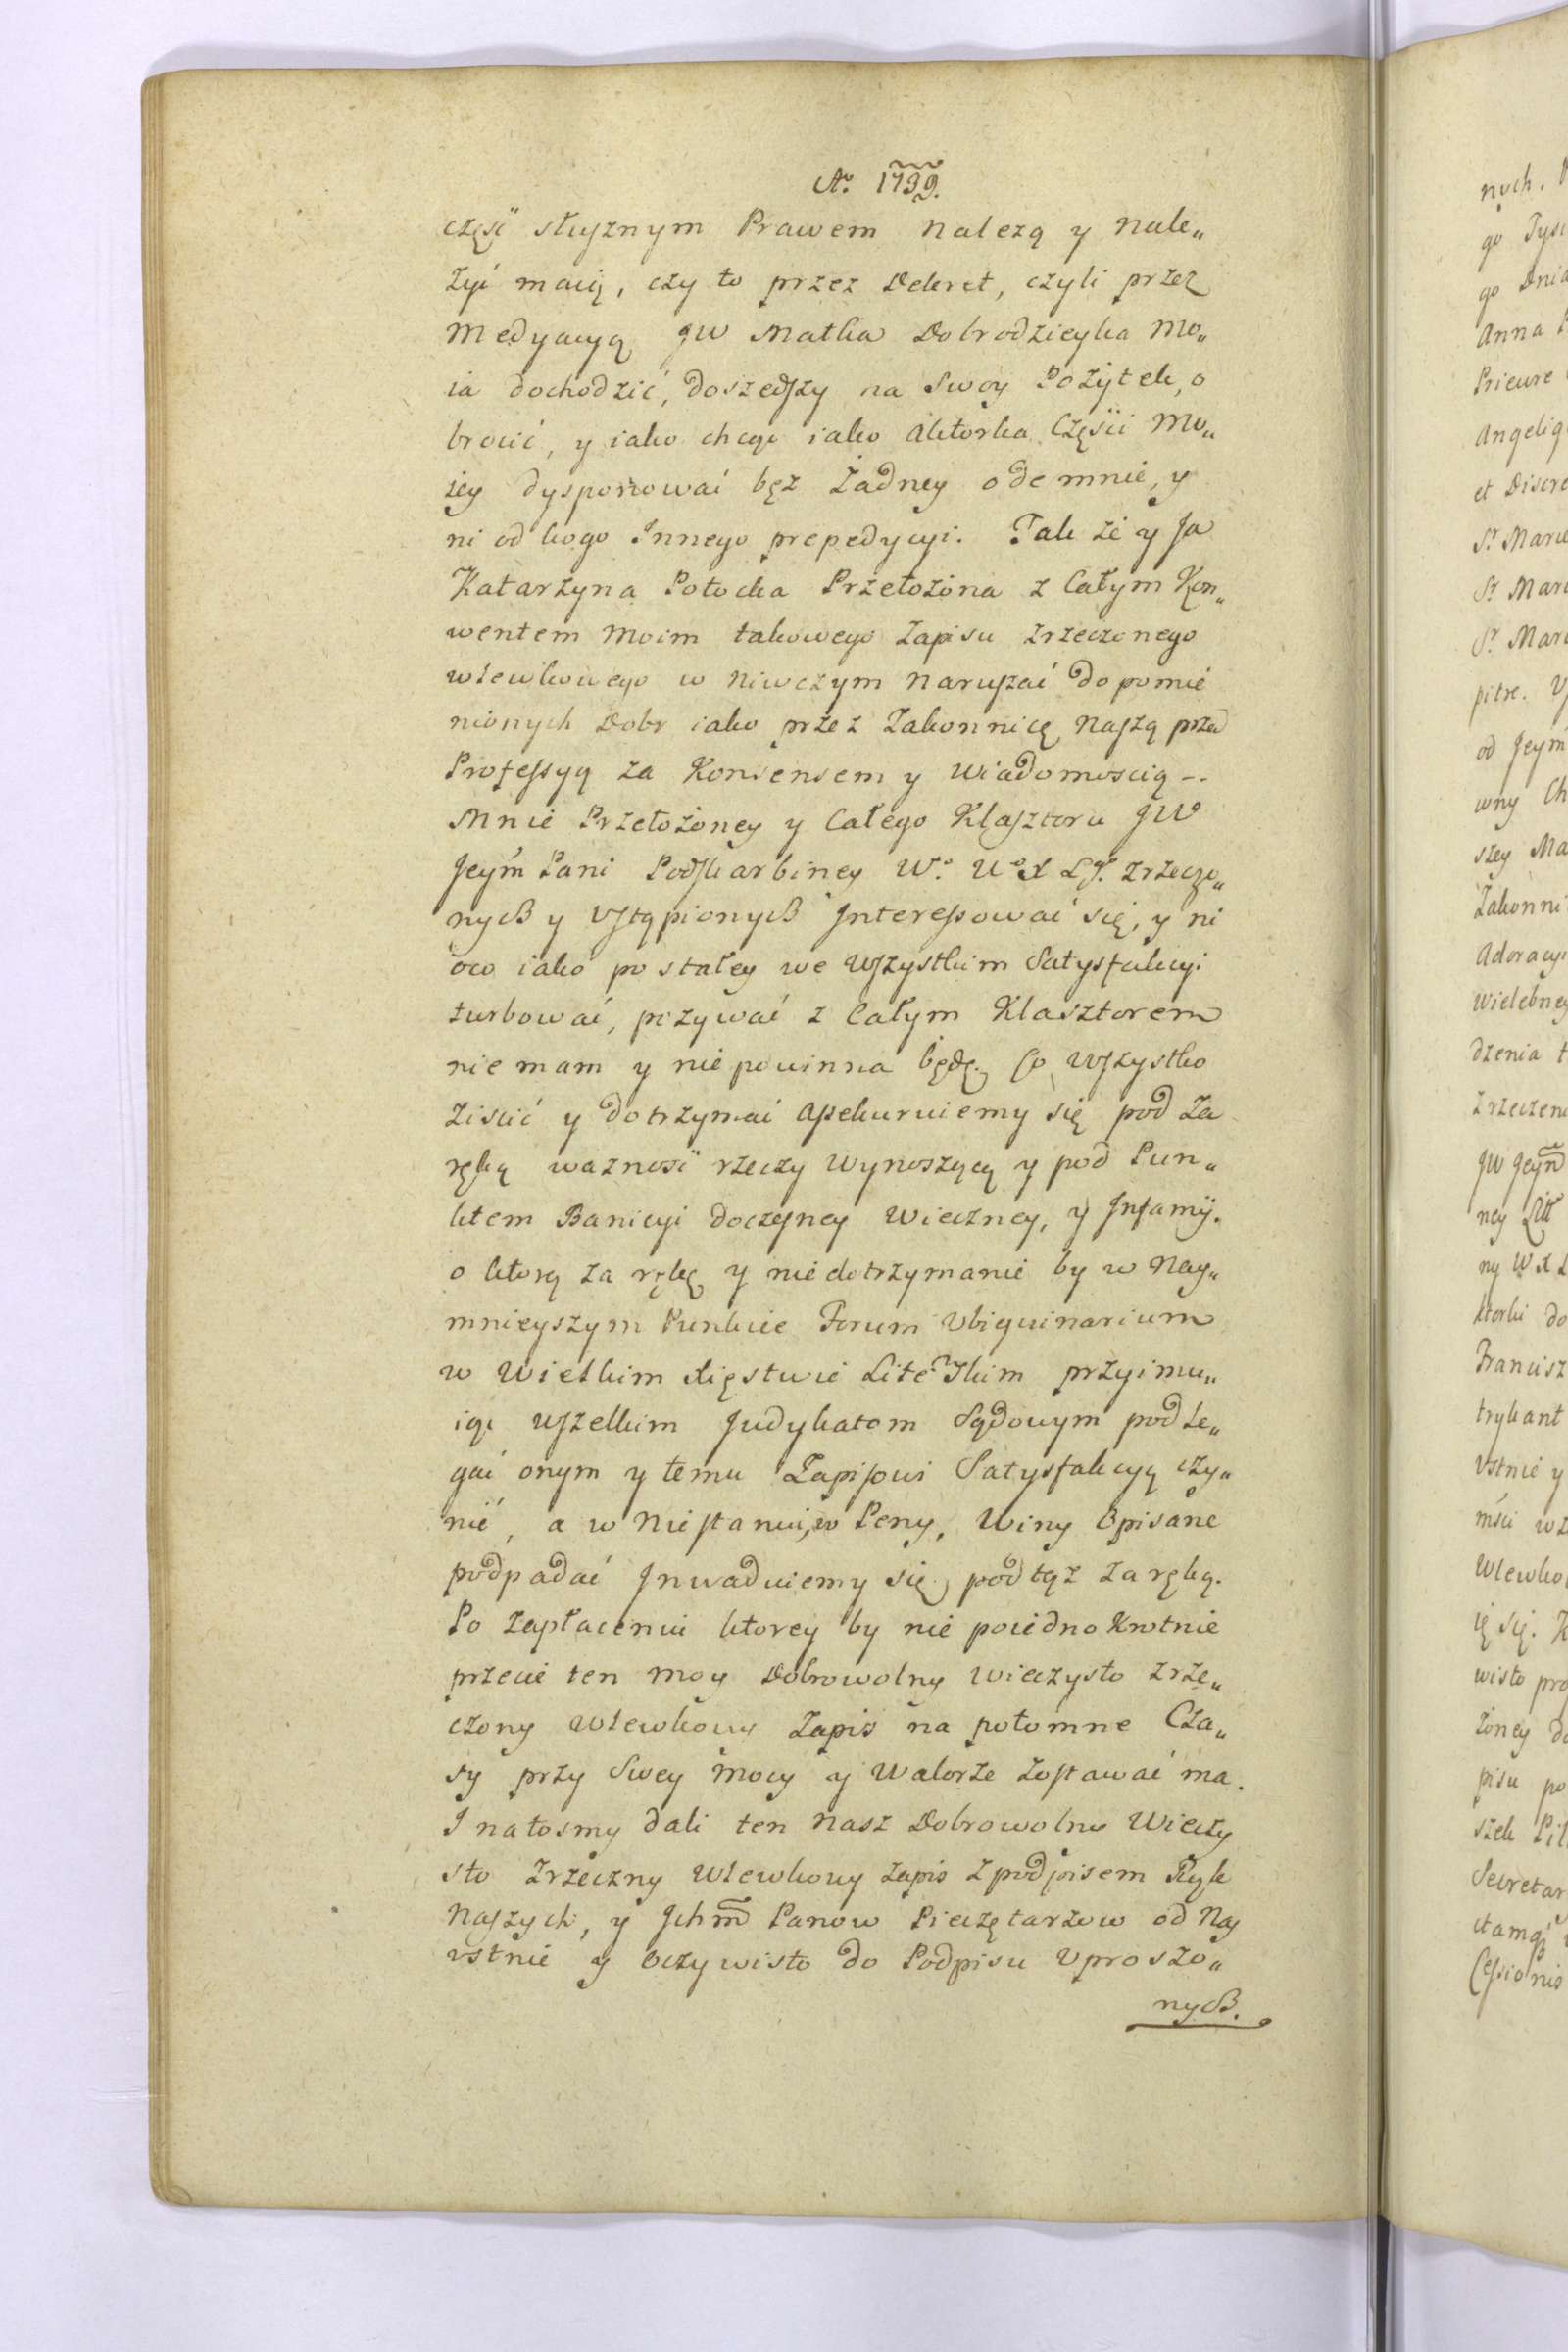 Aº. 1739.
częsci słusznym Prawem nalezą y nale„
żyć maią, czy to przez Dekret, czyli przez
Medyacyą JW Matka Dobrodzieyka Mo„
ia dochodzić, doszedszy na Swoy Pożytek, o
brocić, y iako chcąc iako Aktorka Częsci Mo„
iey dysponować bęz Żadney odemnie, y
ni od kogo Innego prepedycyi. Tak że y Ja
Katarżyna Potocka Przełożona z Całym Kon„
wentem Moim takowego Zapisu zrzeczonego
wlewkowego w niwczym naruszać do pomie
nionych Dobr iako przez Zakonnicę naszą przed
Professyą za Konsensem y Wiadomoscią -.
Mnie Przełożoney y Całego Klasztoru JW
Jeym̃ Pani Podskarbiney Wº. Uº X Lg̃. zrzeczo„
nych y Ustąpionych Interessować się, y ni
oco iako po stałey we Wszystkim Satysfakcyi
turbować, pozywać z Całym Klasztorem
nie mam y nie powinna będę. Co Wszystko
ziscić y dotrzymać Assekuruiemy się pod Za
ręką waznosci rzeczy Wynoszącą y pod Pun„
ktem Banicyi doczesney Wieczney, y Infamij.
o ktorą za rękę y niedotrzymanie by w Nay„
mnieyszym Punkcie Forum Ubiquinarium
w Wielkim Xięstwie Lite˜Skim przyimu„
iąc Wszelkim Judykatom Sądowym podle„
gać onym y temu Zapisowi Satysfakcyą czy„
nić, a w Niestaniu, w Peny, Winy Opisane
podpadać Inwaduiemy się, pod tąż zaręką.
Po Zapłaceniu ktorey by nie poiedno Krotnie
przecie ten Moy Dobrowolny Wieczysto zrze„
czony Wlewkowy Zapis na potomne Cza„
sy przy Swey Mocy y Walorze zostawać ma.
I natosmy dali ten Nasz Dobrowolny Wieczy
sto Zrzeczny Wlewkowy Zapis z podpisem Rąk
Naszych, y Jchm̃ Panow Pieczętarzow od Nas
ustnie y Oczywisto do Podpisu Uproszo„
nych.
nych.
go Tysi
go Dnia
Anna
Prieure
Angeliq
et Discre
Sr. Marie
Sr. Mari
Sr. Mari
pitre.
od Jeym̃
wny Ch
szey Ma
Zakonni
Adoracyi
Wielebney
dzenia t
zrzeczen
JW Jeym̃
ney Litt
ny W X L
ktorki do
Francisz
trykant
Ustnie y
msci wz
Wlewko
ię Się.
wisto pro
żoney do
pisu po
szek Pil
Secretar
ctamq
Cessionis